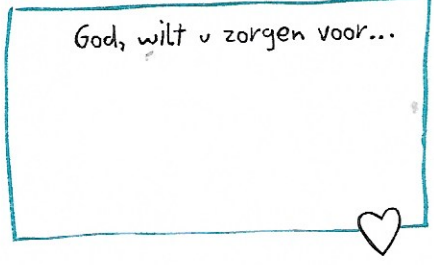 God, wilt u zorgen voor...